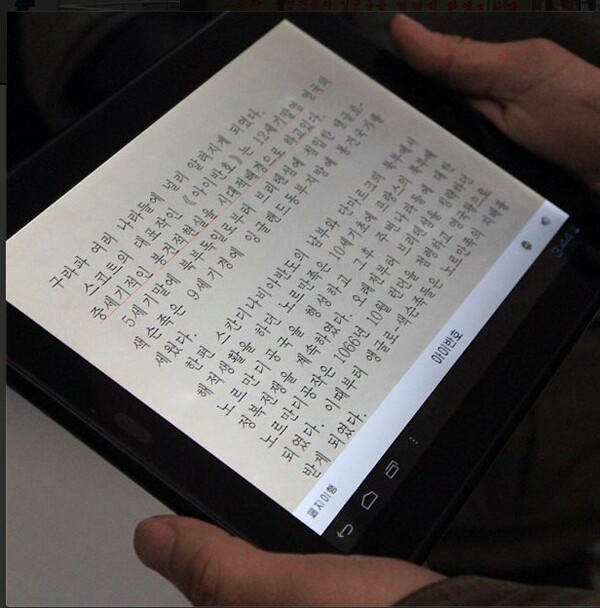 구라파 여러 나라들에 널리 알려지게 되였다.
스코트의 대표작인 《아이반호》는 12세기말엽 영국의
중세기적인 봉건적현실을 시대적배경으로 하고있다.
5세기말에 북부독일로부터 브리텐섬에 침입한 앵글로-
색슨족은 9세기경에 잉글랜드동부지방에 봉건국가를
세웠다.
한편 스칸디나비아반도의 남부와 단마르크의 북부에서
해적생활을 하던 노르만족은 10세기초에 프랑스의 북부에
노르만디공국을 형성하고 그후 주변나라들에 대한
정복전쟁을 계속하였다. 오래전부터 브리텐섬을 정탐하던
노르만디공작은 1066년 10월 런던을 점령하고 영국왕으로
되였다. 이때부터 앵글로-색슨족들은 노르만족의 지배를
받게 되였다.
페지이행
아이반호
3:44